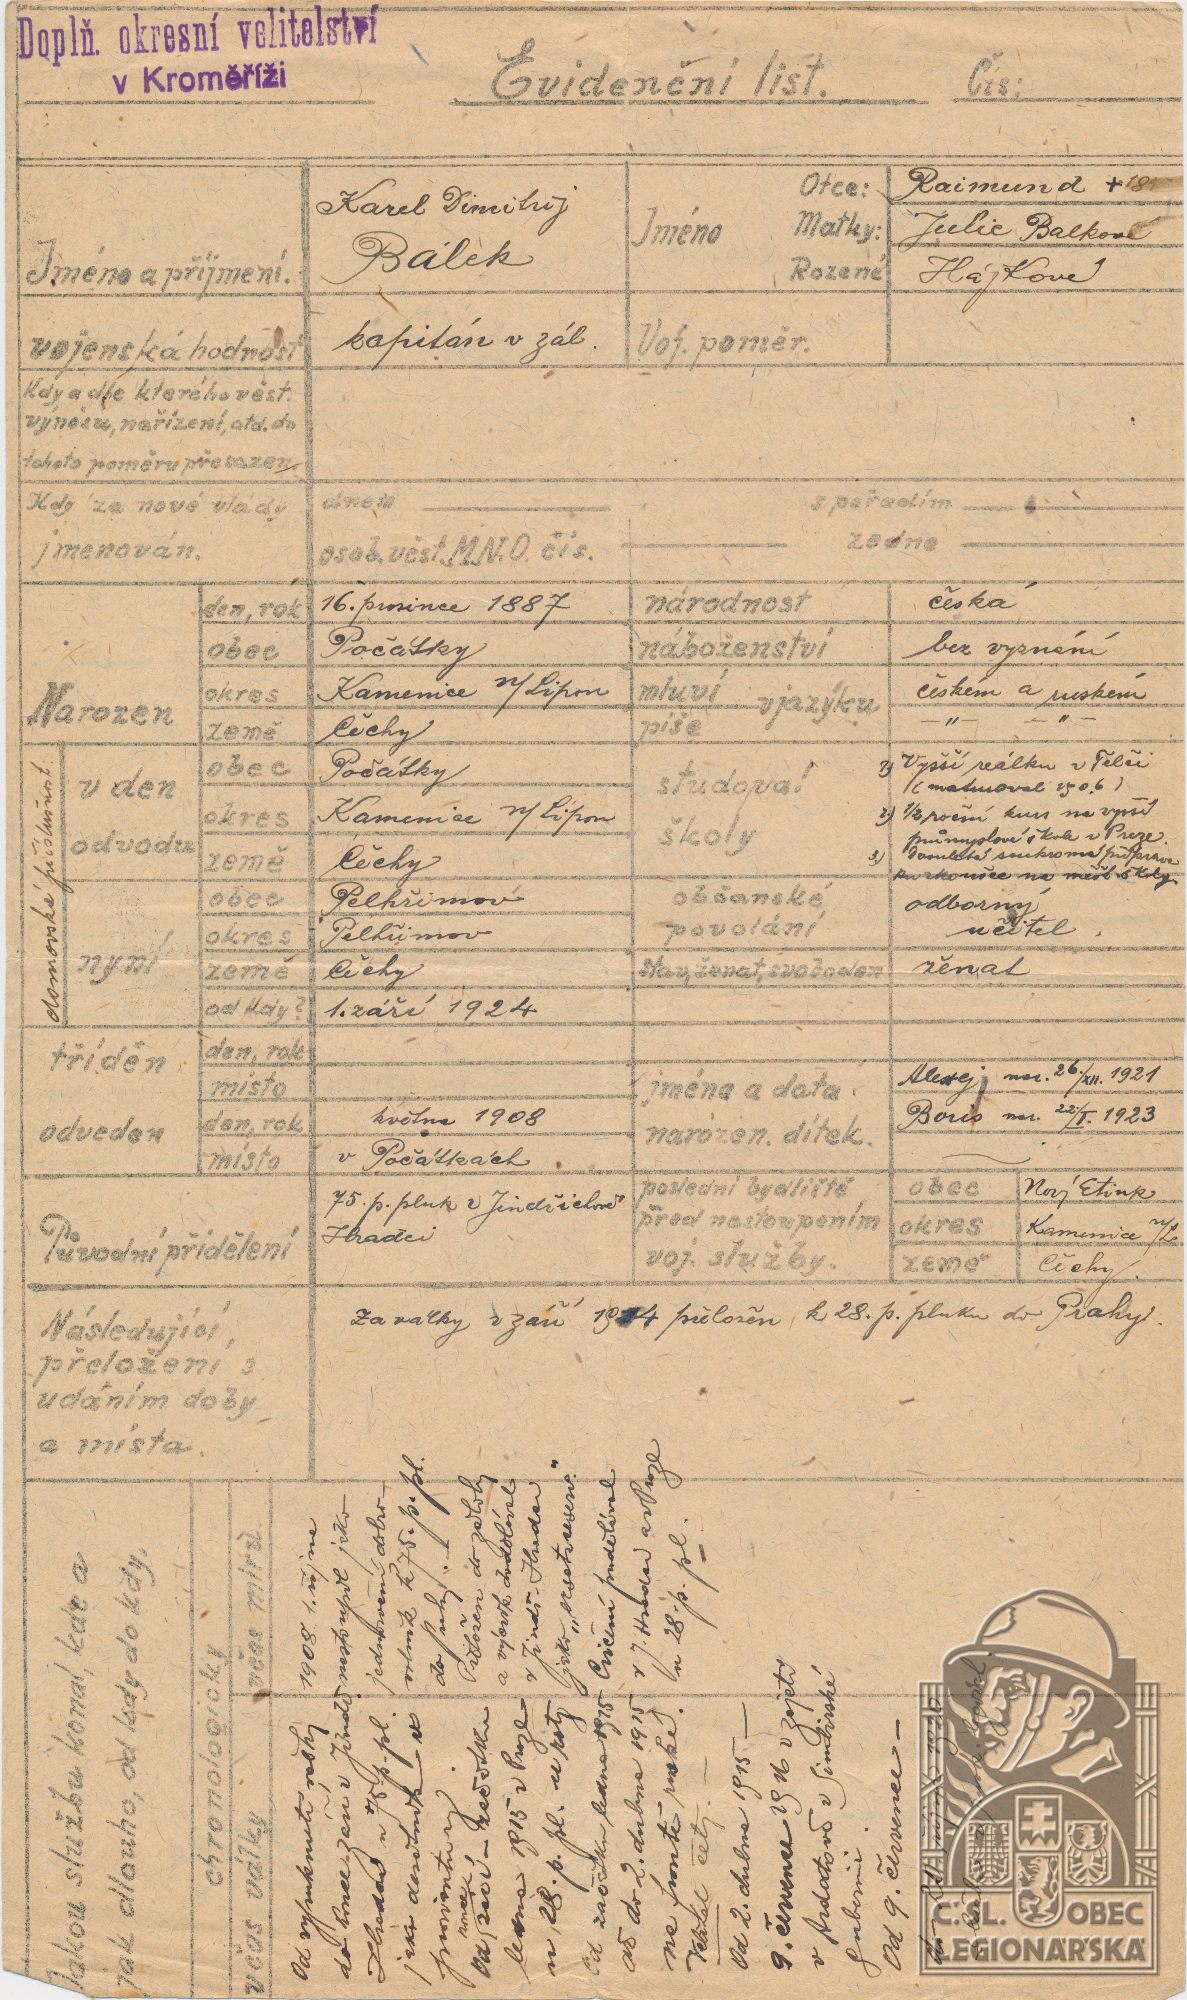 Doplň. okresní velitelství
v Kroměříži
Evidenční list. Čís:
Jméno a příjmení.
Karel Dimitrij
Bálek
Jméno
Otce: Raimund +
Matky: Julie Balkové
Rozené Hájkové
vojenská hodnost kapitán v zál.
Voj. poměr.
Kdy a dle kterého věst.
výnosu, nařízení, atd. do
tohoto poměru přesazen.
Kdy za nové vlády
jmenován.
dnem s pořadím
osob. věst. M.N.O. čís. ze dne
Narozen
den, rok 16. prosince 1887
obec Počátky
okres Kamenice n/Lipou
země Čechy
národnost česká
náboženství bez vyznání
mluví v jazyku českém a ruském
píše —"— —"—
domovská příslušnost
v den
odvodu
obec Počátky
okres Kamenice n/Lipou
země Čechy
nyní
obec Pelhřimov
okres Pelhřimov
země Čechy
od kdy? 1. září 1924
studoval
školy
1) Vyšší reálku v Telči
(maturoval 1906)
2) 1/2 roční kurs na vyšší
průmyslové škole v Praze.
3) soukromá příprava
ku zkoušce na měšť. školy
občanské
povolání
odborný
učitel.
Stav, ženat, svoboden ženat
tříděn
den, rok
místo
odveden
den, rok května 1908
místo v Počátkách
jména a data
narozen. dítek.
Alexej nar. 26./XII. 1921
Boris nar. 22/I. 1923
Původní přidělení
75. p. pluk v Jindřichově
Hradci
poslední bydliště
před nastoupením
voj. služby.
obec Nový Etink
okres Kamenice n/L
země Čechy.
Následující
přeložení s
udáním doby
a místa.
Za války v září 1914 přeložen k 28. p. pluku do Prahy.
Jakou službu konal, kde a
jak dlouho, od kdy do kdy.
chronologicky
včas míru
1908 1. října
nastoupil jako
jednoroční dobro-
volník k 75. p. pl.
do
Přeložen do zálohy
a výcvik
v Jindř. Hradci
jako
Cvičení
v J. Hradci a v Praze
u 28. p. pl.
včas války
Od vypuknutí války
do konce září v Jindř.
Hradci u 75. p. pl.
jako desátník a
Od září - začátku
ledna 1915 v Praze
u 28. p. pl.
Od začátku ledna 1915
až do 2. dubna 1915
na frontě ruské,
Od 2. dubna 1915 —
9. července 1916 v zajetí
v Ardatově v Simbirské
gubernii.
Od 9. července —
1920
Č.S.L. OBEC
LEGIONÁŘSKÁ